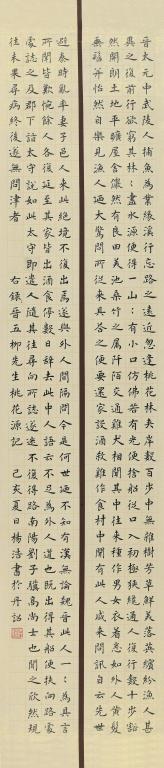 晉太元中武陵人捕魚為業緣溪行忘路之遠近忽逢桃花林夾岸數百步中無雜樹芳草鮮美落英繽紛漁人甚
異之復前行欲窮其林林盡水源便得一山有小口仿佛若有光便捨船從口入初極狹纔通人復行數十步豁
然開朗土地平曠屋舍儼然有良田美池桑竹之屬阡陌交通雞犬相聞其中往來種作男女衣著悉如外人黃髮
垂髫并怡然自樂見漁人乃大驚問所從來具答之便要還家設酒殺雞作食村中聞有此人咸來問訊自云先世
避秦時亂率妻子邑人來此絕境不復出焉遂與外人間隔問今是何世乃不知有漢無論魏晉此人一一為具言
所聞皆歎惋餘人各復延至其家皆出酒食停數日辭去此中人語云不足為外人道也既出得其船便扶向路處
處誌之及郡下詣太守說如此太守即遣人隨其往尋向所誌遂迷不復得路南陽劉子驥高尚士也聞之欣然規
往未果尋病終後遂無問津者
右錄晉五柳先生桃花源記 己亥夏日楊浩書於丹